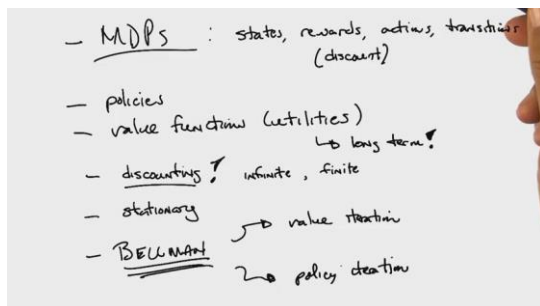 - MDPs : states, rewards, actions, transitions
(discount)
- policies
- value functions (utilities)
↳ long term!
- discounting! infinite, finite
- stationary
→ value iteration
- BELLMAN
→ policy iteration